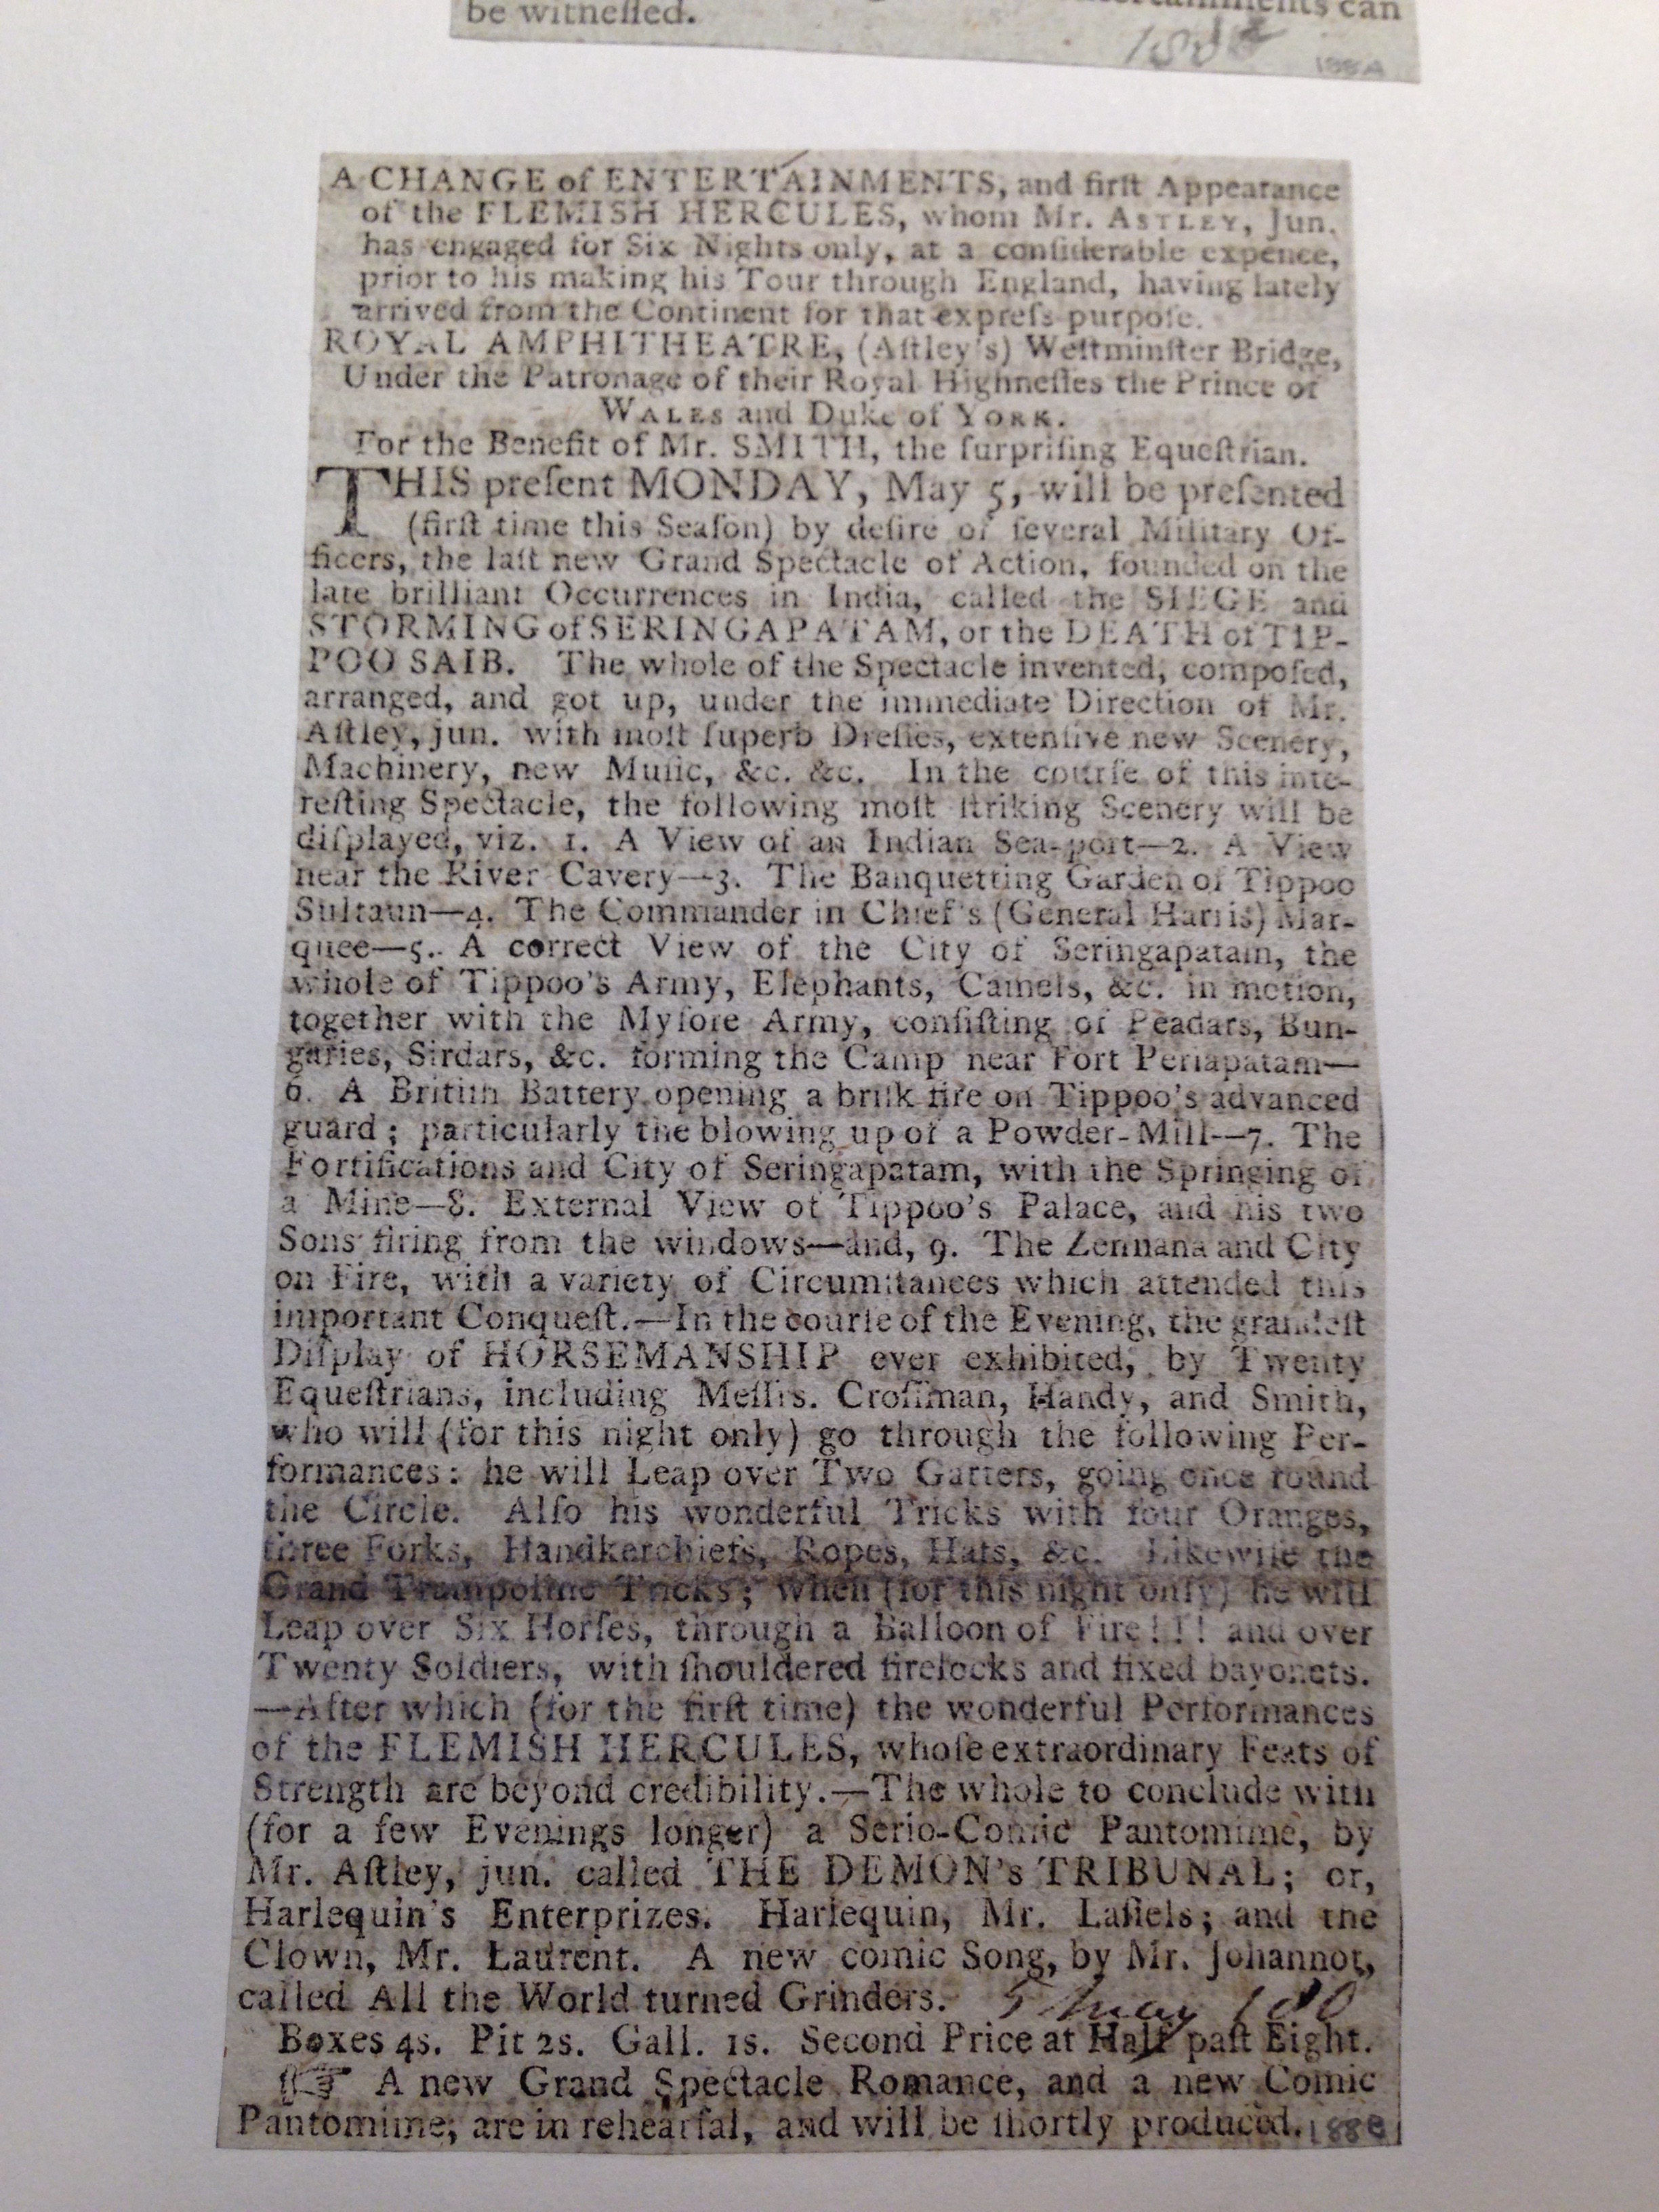 be witneſſed.
ents can
A CHANGE of ENTERTAINMENTS, and firſt Appearance
of the FLEMISH HERCULES, whom Mr. ASTLEY, Jun.
has engaged for Six Nights only, at a conſiderable expence,
prior to his making his Tour through England, having lately
arrived from the Continent for that expreſs purpoſe.
ROYAL AMPHITHEATRE, (Aſtley's) Weſtminſter Bridge,
Under the Patronage of their Royal Highneſſes the Prince of
WALES and Duke of YORK.
For the Benefit of Mr. SMITH, the ſurpriſing Equeſtrian.
THIS preſent MONDAY, May 5, will be preſented
(firſt time this Seaſon) by deſire of ſeveral Military Of-
ficers, the laſt new Grand Spectacle of Action, founded on the
late brilliant Occurrences in India, called the SIEGE and
STORMING of SERINGAPATAM, or the DEATH of TIP-
POO SAIB. The whole of the Spectacle invented, compoſed,
arranged, and got up, under the immediate Direction of Mr.
Aſtley, jun. with moſt ſuperb Dreſſes, extenſive new Scenery,
Machinery, new Muſic, &c. &c. In the courſe of this inte-
reſting Spectacle, the following moſt ſtriking Scenery will be
diſplayed, viz. 1. A View of an Indian Sea-port—2. A View
near the River Cavery—3. The Banquetting Garden of Tippoo
Sultaun—4. The Commander in Chief's (General Harris) Mar-
quee—5. A correct View of the City of Seringapatam, the
whole of Tippoo's Army, Elephants, Camels, &c. in motion,
together with the Myſore Army, conſiſting of Peadars, Bun-
garies, Sirdars, &c. forming the Camp near Fort Periapatam—
6. A Britiſh Battery opening a briſk fire on Tippoo's advanced
guard; particularly the blowing up of a Powder-Mill—7. The
Fortifications and City of Seringapatam, with the Springing of
a Mine—8. External View of Tippoo's Palace, and his two
Sons firing from the windows—and, 9. The Zennana and City
on Fire, with a variety of Circumſtances which attended this
important Conqueſt.—In the courſe of the Evening, the grandeſt
Diſplay of HORSEMANSHIP ever exhibited, by Twenty
Equeſtrians, including Meſſrs. Croſſman, Handy, and Smith,
who will (for this night only) go through the following Per-
formances: he will Leap over Two Garters, going once round
the Circle. Alſo his wonderful Tricks with four Oranges,
three Forks, Handkerchiefs, Ropes, Hats, &c. Likewiſe the
Grand Trampoline Tricks; when (for this night only) he will
Leap over Six Horſes, through a Balloon of Fire!!! and over
Twenty Soldiers, with ſhouldered firelocks and fixed bayonets.
—After which (for the firſt time) the wonderful Performances
of the FLEMISH HERCULES, whoſe extraordinary Feats of
Strength are beyond credibility.—The whole to conclude with
(for a few Evenings longer) a Serio-Comic Pantomime, by
Mr. Aſtley, jun. called THE DEMON's TRIBUNAL; or,
Harlequin's Enterprizes. Harlequin, Mr. Laſſels; and the
Clown, Mr. Laurent. A new comic Song, by Mr. Johannot,
called All the World turned Grinders. 5 May 180
Boxes 4s. Pit 2s. Gall. 1s. Second Price at Half paſt Eight.
☞ A new Grand Spectacle Romance, and a new Comic
Pantomime, are in rehearſal, and will be ſhortly produced.